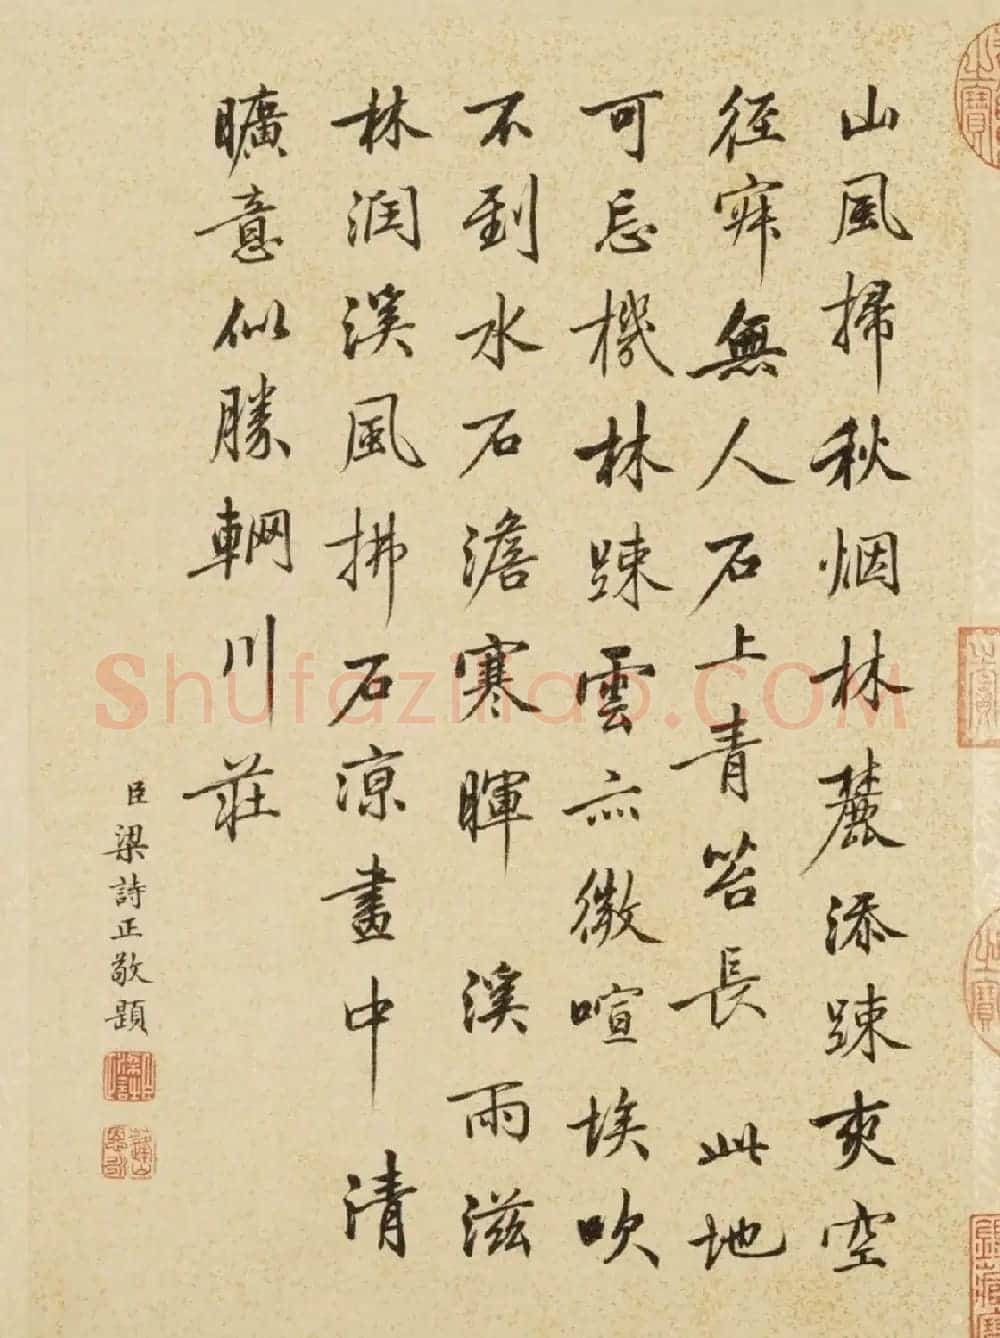 山風掃秋烟林麓添踈爽空
徑寂無人石上青苔長 此地
可忘機林踈雲亦微喧埃吹
不到水石澹寒暉 溪雨滋
林润溪風拂石涼畫中 清
曠意似勝輞川莊
臣梁詩正敬題
Shufaziliao.COM
之寶
之寶